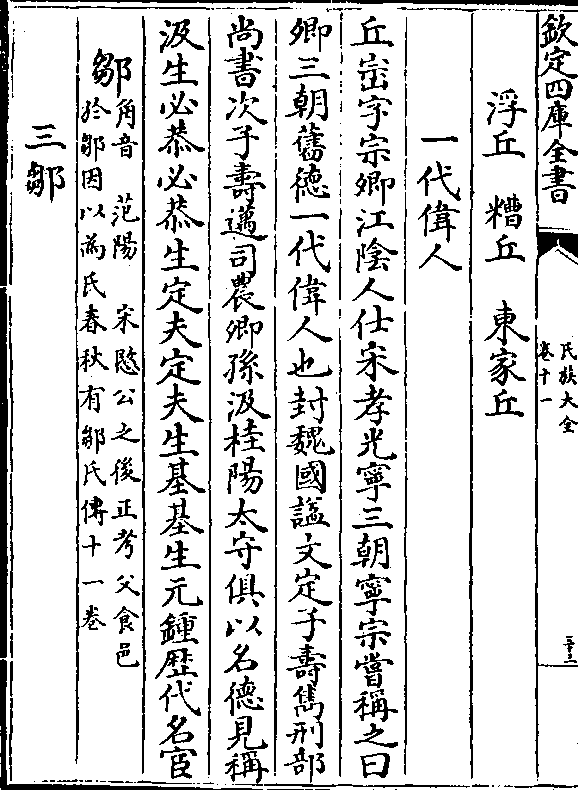 欽定四庫全書
氏族大全
卷十一
三十二
浮丘 糟丘 東家丘
一代偉人
丘崈字宗卿江陰人仕宋孝光寧三朝寧宗嘗稱之曰
卿三朝舊德一代偉人也封魏國諡文定子壽雋刑部
尚書次子壽邁司農卿孫汲桂陽太守俱以名德見稱
汲生必恭必恭生定夫定夫生基基生元鍾歷代名宦
鄒角音 范陽 宋愍公之後正考父食邑
於鄒因以為氏春秋有鄒氏傳十一卷
三鄒